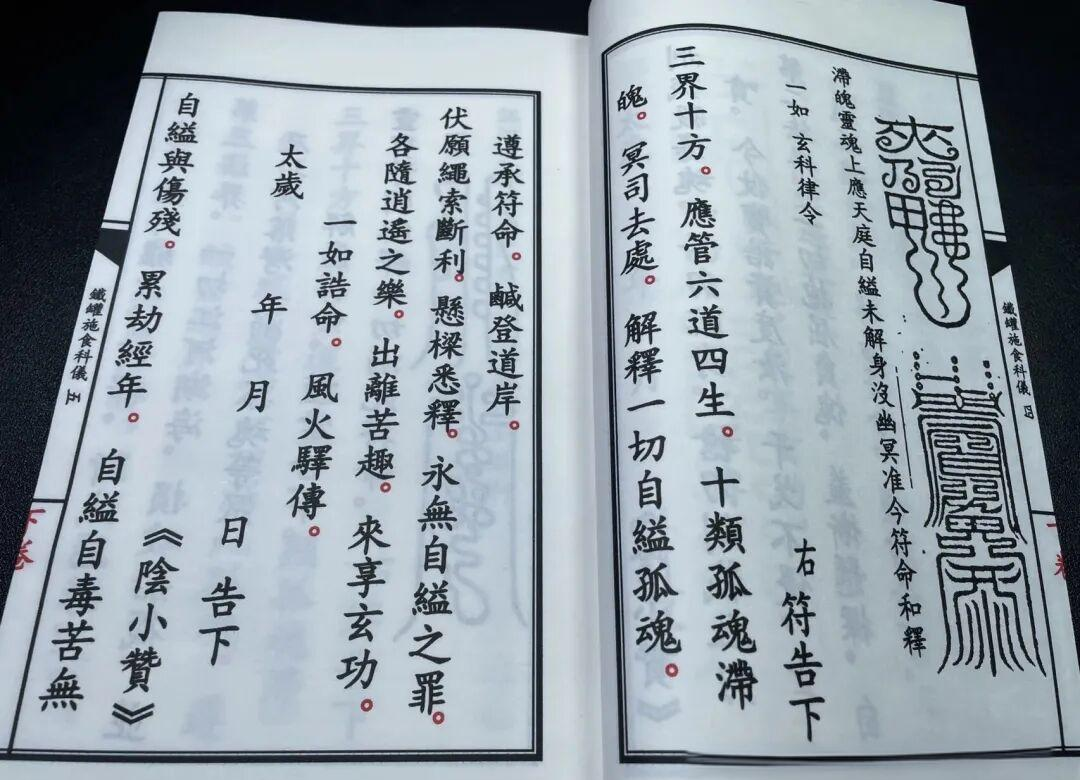 鐵罐施食科儀
滯魄靈魂上應天庭自縊未解身沒幽冥准今符命和釋
一如 玄科律令
右符告下
三界十方。應管六道四生。十類孤魂滯
魄。冥司去處。解釋一切自縊孤魂。
遵承符命。鹹登道岸。
伏願繩索斷利。懸樑悉釋。永無自縊之罪。
各隨逍遙之樂。出離苦趣。來享玄功。
一如誥命。風火驛傳。
太歲 年 月 日 告下
《陰小贊》
自縊與傷殘。累劫經年。自縊自毒苦無
鐵罐施食科儀 五
下卷